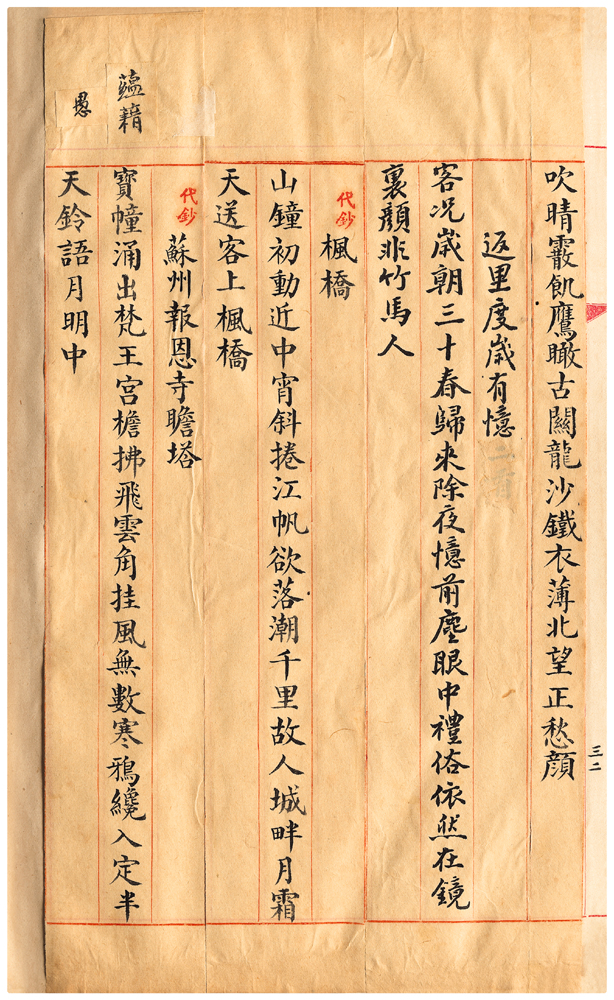 吹晴霰飢鷹瞰古關龍沙鐵衣薄北望正愁顏
返里度歲有憶二首
客况歲朝三十春歸來除夜憶前塵眼中禮俗依然在鏡
裏顏非竹馬人
代鈔
楓橋
山鐘初動近中宵斜捲江帆欲落潮千里故人城畔月霜
天送客上楓橋
代鈔
蘇州報恩寺瞻塔
蘊藉
寶幢涌出梵王宮檐拂飛雲角挂風無數寒鴉纔入定半
愚
天鈴語月明中
三二